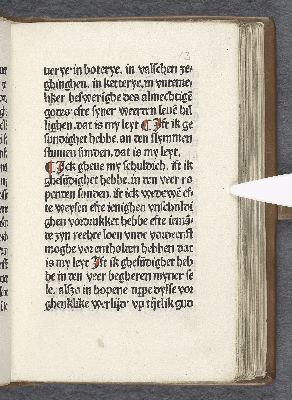 uerye in boterye, in valschen ze-
ghinghen, in ketterye, in
liker beswerighe des almechtigē
godes efte syner werden leuē hil
lighen. dat is my leyt ¶ Ist ik ge
sundighet hebbe, an den stummen
stunen sunden, dat is my leyt.
¶ Ick gheue my schuldich, ist ik
ghesundighet hebbe, in den veer ro
penden sunden, ist ick wedewē ef-
te weysen efte ienighen vnschuldi
ghen vordrukket hebbe efte iemā-
de zyn rechte loen vnde vordenst
moghe vor entholden hebben dat
is my leyt Ist ik ghesūdighet heb
be in den veer begheren myner se
le, alzo in bouene type dysse vor
ghenklike werlijd vp tijtlik gud